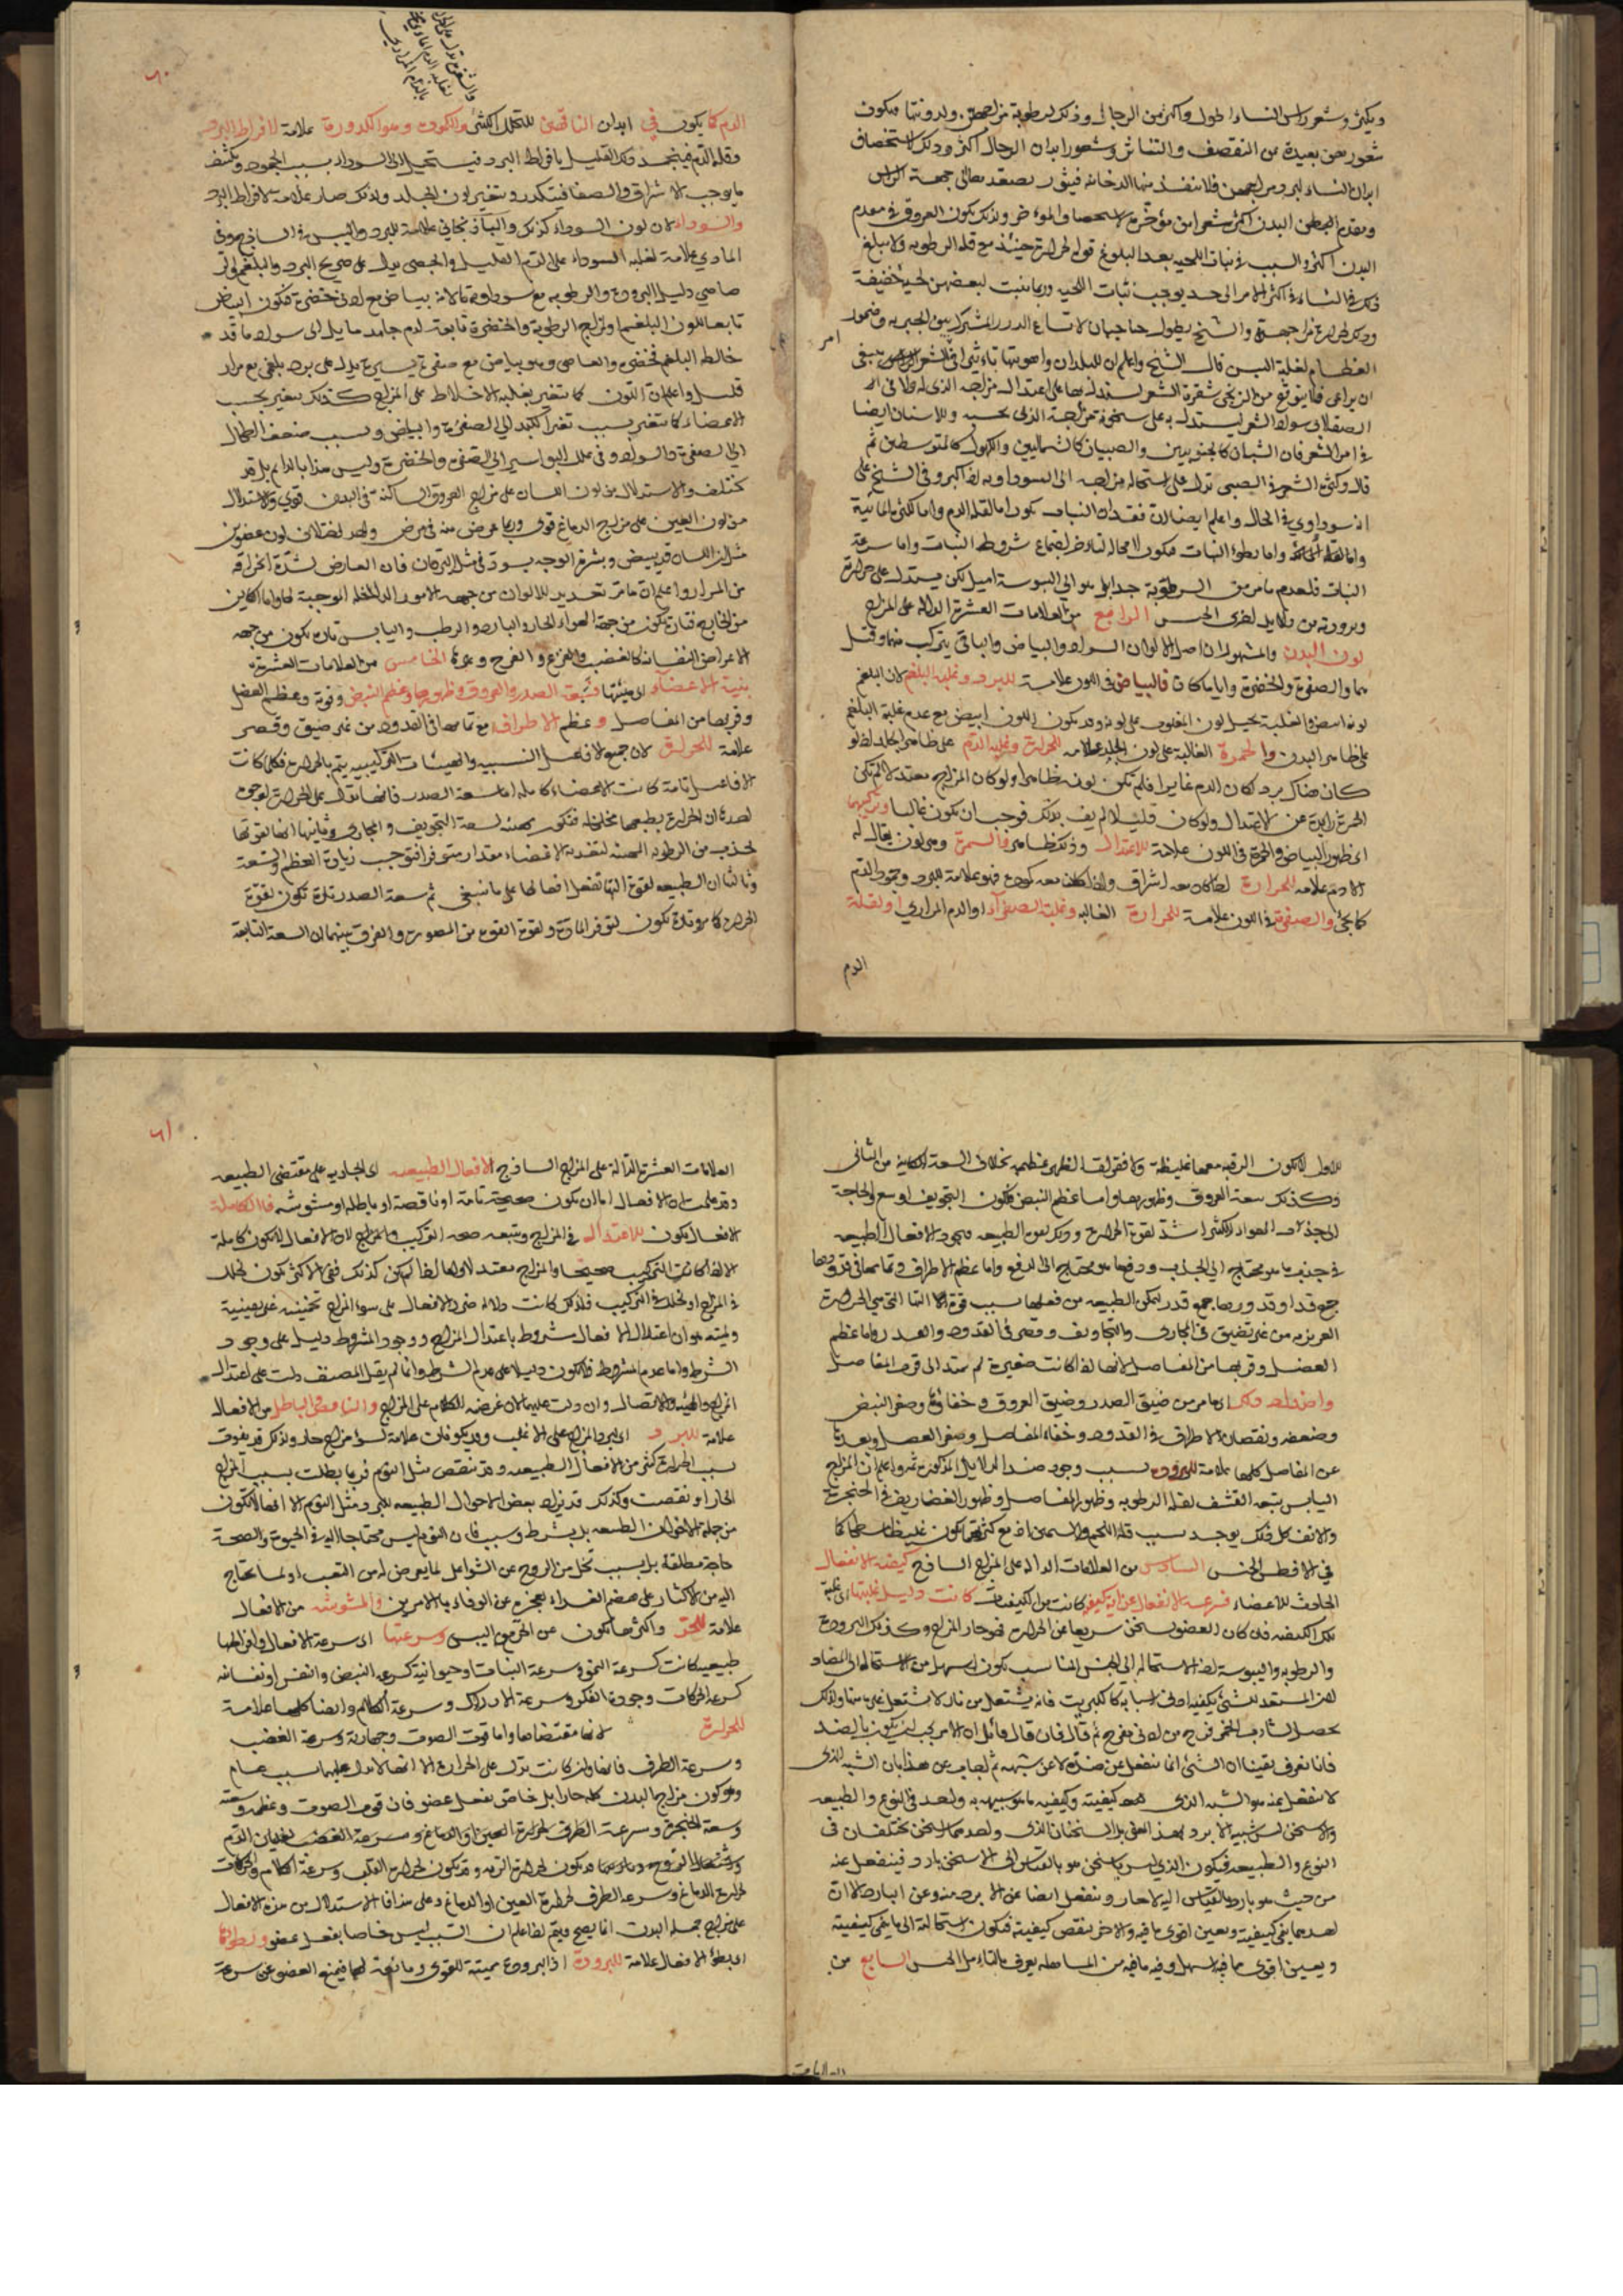 ويكثر وشعر راس النساء اطول واكثر من الرجال وذلك لرطوبة مزاجهن ولدونتها فيكون
شعورهن بعيدة من التقصف والتناثر وشعور ابدان الرجال اكثر وذلك لاستحصاف
ابدان النساء لبرد مزاجهن فلا تنفذ منها الدخانية فيثور بصعد تعالى جهة الراس
ومقدم البدن اكثر شعرا من مؤخره لاستحصاف المؤخر ولذلك يكون العروق في مقدم
البدن اكثر والسبب في نبات اللحية بعد البلوغ قوة الحرارة حينئذ مع قلة الرطوبة ولا يبلغ
ذلك في النساء في اكثر الامر الى حد يوجب نبات اللحية وربما ينبت لبعضهن لحية خفيفة
وذلك لحرارة مزاجهن والشيخ يطول حاجباه لاتساع الدرز المشترك بين الجبهة وضمور
العظام لغلبة اليبس قال الشيخ واعلم ان للبلدان واهويتها تاثيرا في الشعر ينبغي
ان يراعى فلا يتوقع من الزنجي شقرة الشعر ليستدل بها على اعتدال مزاجه الذي له ولا في
الصقلابي سواد الشعر ليستدل به على سخونة مزاجه الذي بحسبه وللاسنان ايضا
في امر الشعر فان الشبان كالجنوبيين والصبيان كالشماليين والكهول كالمتوسطين ثم
قال وكثرة الشعر في الصبي تدل على استحالة مزاجه الى السوداوية اذا كبر وفي الشيخ على
انه سوداوي في الحال واعلم ايضا ان فقدان النبات يكون اما لقلة الدم واما لكثرة المائية
واما بطؤ النبات فيكون لا محالة شروط النبات واما سرعة
النبات فلعدم مانع من الرطوبة جدا بل هو الى اليبوسة اميل لكن يستدل على حرارته
وبرودته من دلايل اخرى الجنس الرابع من العلامات العشرة الدالة على المزاج
لون البدن والمشهور ان اصل الالوان السواد والبياض والباقي يتركب منهما وقيل
هما والصفرة والخضرة وايا ما كان فالبياض في اللون علامة للبرد وغلبة البلغم لان البلغم
لونه ابيض والغلبة يحيل لون المغلوب على لونه وقد يكون اللون ابيض مع عدم غلبة البلغم
على ظاهر البدن والحمرة الغالبة على لون الجلد علامة للحرارة وغلبة الدم على ظاهر الجلد اذ لو
كان هناك برد لكان الدم غايرا فلم تكن لونه ظاهرا ولو كان المزاج معتدلا لم تكن
الحمرة زايدة عن الاعتدال ولو كان قليلا لم يف بذلك فوجب ان يكون غالبا وتركيبهما
اي ظهور البياض والحمرة في اللون علامة للاعتدال وذلك ظاهر والسمرة وهي لون يقال له
الادمة علامة للحرارة اذا كان معه اشراق واذا كان معه كمودة فهو علامة للبرد وجمود الدم
كما يجئ والصفرة في اللون علامة للحرارة الغالبة وغلبة الصفراء او الدم المراري او لقلة
الدم
الدم كما يكون في ابدان الناقهين للتحلل الكثير والكمودة وهو الكدورة علامة لافراط البرد
وقلة الدم فينجمد ذلك القليل بافراط البرد فيستحيل الى السواد بسبب الجمود ويكثف
ما يوجب الاشراق والصفا فيتكدر ويتغير لون الجلد ولذلك صار علامة لافراط البرد
والسوداء لان لون السوداء كذلك والباذنجاني علامة للبرد واليبس في الساذج وفي
المادي علامة لغلبة السوداء على الدم القليل والجصي يدل على صريح البرد والبلغم والر
صاصي دليل البرودة والرطوبة مع سوداوية ما لانه بياض مع ادنى خضرة فيكون البياض
تابعا للون البلغم او لمزاج الرطوبة والخضرة تابعة لدم جامد مايل الى سواد ما قد
خالط البلغم فخضره والعاجي وهو بياض مع صفرة يسيرة يدل على برد بلغمي مع مرار
قليل واعلم ان اللون كما يتغير بغلبة الاخلاط على المزاج كذلك يتغير بحسب
الاعضاء كما يتغير بسبب تغير الكبد الى الصفرة والبياض وبسبب ضعف الطحال
الى الصفرة والسواد وفي علل البواسير الى الصفرة والخضرة وليس هذا بالدايم بل قد
يختلف والاستدلال من لون اللسان على مزاج العروق الساكنة في البدن قوي والاستدلال
من لون العين على مزاج الدماغ قوي وربما عرض منه في مرض واحد اختلاف لون عضوين
مثل ان اللسان قد يبيض وبشرة الوجه يسود في مثل اليرقان فان العارض لشدة الحرارة
من المرار واعلم ان ما مر تحديد للالوان من جهة الامور الداخلة الموجبة لها واما الكاين
من الخارج فتارة يكون من جهة الهواء الحار والبارد والرطب واليابس وتارة يكون من جهة
الاعراض النفسانية كالغضب والفزع والفرح ونحوها الخامس من العلامات العشرة
هيئة الاعضاء اي هيئتها فسعة الصدر والعروق وظهورها وعظم النبض وقوته وعظم العضل
وقربها من المفاصل وعظم الاطراف مع تمامها في القدود من غير ضيق وقصر
علامة للحرارة لان جميع الافاعيل النسبية والهيئات التركيبية يتم بالحرارة فكلما كانت
الافاعيل تامة كانت الاعضاء كاملة اما سعة الصدر فانها تدل على الحرارة لوجوه
احدها ان الحرارة بطبعها مخلخلة فيكون معه لسعة التجويف والمجاري وثانيها انها لقوتها
تجذب من الرطوبة المعينة لتغذية الاعضاء مقدارا متوفرا فتوجب زيادة العظم والسعة
وثالثها ان الطبيعة لقوة التها تفعل افعالها على ما ينبغي ثم سعة الصدر تارة تكون لقوة
الحرارة كما مر وتارة تكون لتوفر المادة ولقوة القوة من المصورة والفرق بينهما ان السعة التابعة
للاول لا تكون الرقبة معها غليظة ولا فقرات الظهر عظيمة بخلاف السعة الكاينة من الثاني
وكذلك سعة العروق وظهورها واما عظم النبض فلكون التجويف اوسع والحاجة
الى جذب الهواء الكثير اشد لقوة الحرارة وذلك لقوة الطبيعة وجودة الافعال الطبيعية
في جذب ما هو محتاج الى الجذب ودفع ما هو محتاج الى الدفع واما عظم الاطراف وتمامها في قدودها
جمع قد او قدورها جمع قدر لتمكن الطبيعة من فعلها بسبب قوة الالة التي هي الحرارة
الغريزية من غير تضييق في المجاري والتجاويف وقصر في القدود والقدر واما عظم
العضل وقربها من المفاصل لانها اذا كانت صغيرة لم تمتد الى قرب المفاصل
واضداد ذلك اي ما مر من ضيق الصدر وضيق العروق وخفائها وصغر النبض
وضعفه ونقصان الاطراف في القدود وخفاء المفاصل وصغر العضل وبعدها
عن المفاصل كلها علامة للبرودة بسبب وجود ضد الدلايل المذكورة ثم واعلم ان المزاج
اليابس يتبعه القشف لقلة الرطوبة وظهور المفاصل وظهور الغضاريف في الحنجرة
والانف كل ذلك يوجد بسبب قلة اللحم والسمين
في الافطس الجنس السادس من العلامات الدالة على المزاج الساذج كيفية الانفعال
الحادث للاعضاء فسرعة الانفعال عن اية كيفية كانت من الكيفيات كانت دليل غلبتها اي غلبة
تلك الكيفية فان كان العضو يسخن سريعا عن الحرارة فهو حار المزاج وكذلك البرودة
والرطوبة واليبوسة اذ الاستحالة الى الجنس المناسب يكون اسهل من الاستحالة الى المضاد
لان المستعد للشئ يكفيه ادنى اسبابه كالكبريت فانه يشتعل من نار لا يشتعل غيره منها ولذلك
يحصل لشارب الخمر فرح من ادنى مفرح ثم قال فان قال قائل ان الامر يجب ان يكون بالضد
فانا نعرف يقينا ان الشئ انما ينفعل عن ضده لا عن شبهه ثم اجاب عن هذا بان الشبه الذي
لا ينفعل عنه هو الشبه الذي كيفيته وكيفية ما هو شبيه به واحد في النوع والطبيعة
والاسخن ليس شبيها للابرد بهذا المعنى بل السخنان الذي واحدهما اسخن يختلفان في
النوع والطبيعة فيكون الذي ليس باسخن هو بالقياس الى الاسخن باردا فينفعل عنه
من حيث هو بارد بالقياس اليه لا حار وينفعل ايضا عن الابرد منه وعن البارد الا ان
احدهما ينمي كيفيته ويعين اقوى ما فيه والاخر ينقص كيفيته فيكون استحالته الى ما ينمي كيفيته
ويعين اقوى ما فيه اسهل وفيه ما فيه من المساهلة يعرف بالتامل الجنس السابع من
العلامات
العلامات العشرة الدالة على المزاج الساذج الافعال الطبيعية اي الجارية على مقتضى الطبيعة
وقد علمت ان الافعال اما ان يكون صحيحة تامة او ناقصة او باطلة او مشوشة فالكاملة
الافعال يكون للاعتدال في المزاج ويتبعه صحة التركيب والمزاج لان الافعال لا تكون كاملة
الا اذا كانت التركيب صحيحا والمزاج معتدلا واما اذا لم يكن كذلك ففي الاكثر يكون لخلل
في المزاج او لخلل في التركيب فلذلك كانت دلالة ضرر الافعال على سوء المزاج تخمينية غير يقينية
ولميته هو ان اعتدال الافعال مشروط باعتدال المزاج ووجود المشروط دليل على وجود
الشرط واما عدم المشروط فلا يكون دليلا على عدم الشرط وانما لم يقل المصنف دلت على اعتدال
المزاج والهيئة والاتصال وان دلت عليها لان غرضه الكلام على المزاج والناقص والباطل من الافعال
علامة للبرد اي لبرد المزاج على الاغلب وقد يكونان علامة لسوء مزاج حار ولذلك قد يفوت
بسبب الحرارة كثير من الافعال الطبيعية وقد تنقص مثل النوم فربما بطلت بسبب المزاج
الحار او نقصت وكذلك قد يزداد بعض الاحوال الطبيعية للبرد مثل النوم الا انها لا تكون
من جملة الاحوال الطبيعية بل بشرط وسبب فان النوم ليس محتاجا اليه في الحيوة والصحة
حاجة مطلقة بل بسبب تخل من الروح عن الشواغل لما يعرض له من التعب او لما يحتاج
اليه من الاكباب على هضم الغذاء لعجزه عن الوفاء بالامرين والمشوشة من الافعال
علامة للحر واكثر ما يكون عن الحر مع اليبس وسرعتها اي سرعة الافعال وافراطها
طبيعية كانت كسرعة النمو وسرعة النبات او حيوانية كسرعة النبض والنفس او نفسانية
كسرعة الحركات وجودة الفكر وسرعة الادراك وسرعة الكلام وايضا كلها علامة
للحرارة لانها مقتضاها واما قوة الصوت وجهارته وسرعة الغضب
وسرعة الطرف فانها وان كانت تدل على الحرارة الا انها لا تدل عليها بسبب عام
وهو كون مزاج البدن كله حارا بل خاص بفعل عضو فان قوة الصوت وعظمه
وسعة الحنجرة وسرعة الطرف لحرارة العين او الدماغ وسرعة الغضب لغليان الدم
لحرارة الدماغ وسرعة الطرف لحرارة العين او الدماغ وعلى هذا فالاستدلال من هذه الافعال
على مزاج جملة البدن انما يصح ويتم اذا علم ان السبب ليس خاصا بفعل عضو وبطؤها
اي بطؤ الافعال علامة للبرودة اذ البرودة مميتة للقوى ومانعة لها فيمنع العضو عن سرعة